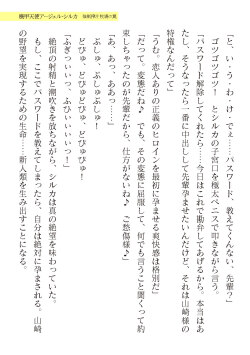 機甲天使アージェル・シルカ 復讐孕ミ牝湯の罠
「と、い・う・わ・け・でぇ……パスワード、教えてくんない、先輩？」
　ゴツゴツゴツ！　とシルカの子宮口を極太ペニスで叩きながら言う。
「パスワード解除してくれたら……今日はこれで勘弁してあげるから。本当はあ
たし、そうなったら一番に中出しして先輩孕ませたいんだけど、それは山崎様の
特権なんだって」
「なんで、って、恋人ありの正義のヒロインを最初に孕ませる爽快感は格別だ」
「だって。変態だね♪　でも、その変態に屈服して、何でも言うこと聞くって約
束しちゃったのが先輩だから、仕方がないね♪　ご愁傷様♪」
「あ、あっ、ああっ……あ……」
　ぷしゅ、ぷしゅぷしゅ！
　どぴゅどぴゅ、どぴゅびゅ！
「ふぎっいぃっ、ひいぃぃっ！」
　絶頂の射精と潮吹きを放ちながら、シルカは真の絶望を味わっていた。
　もし、ここでパスワードを教えてしまったら、自分は絶対に孕まされる。山崎
の野望を実現するための生命……新人類を生み出すことになる。